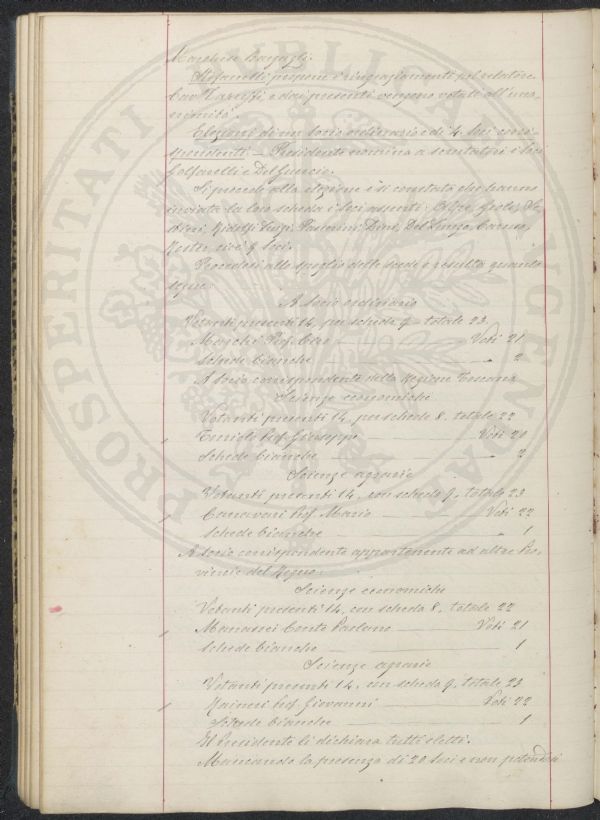 Marchese Bargagli.
Stefanelli propone i ringraziamenti pel relatore
Cav. Zaruffi, e dai presenti vengono votati all'una-
nimità.
Elezioni di un socio ordinario e di 4 Soci corri-
spondenti. — Presidente nomina a scrutatori i Soci
Golfarelli e Del Guercio.
Si procede alla elezione e si constata che hanno
inviata la loro scheda i Soci assenti:
Ridolfi Luigi, Passerini, Dini, Del Lungo, Caruso,
cioè 9 Soci.
Procedesi allo spoglio delle schede e resulta quanto
segue:
A Socio ordinario
Votanti presenti 14, per scheda 9 — totale 23.
Marchi Prof. — Voti 21
Schede bianche — 2
A Socio corrispondente della Regione Toscana
Scienze economiche
Votanti presenti 14, per schede 8, totale 22
Prof. Giuseppe — Voti 20
Schede bianche — 2
Scienze agrarie
Votanti presenti 14, con scheda 9, totale 23
Canavari Prof. Mario — Voti 22
Schede bianche — 1
A Socio corrispondente appartenente ad altre Pro-
vincie del Regno.
Scienze economiche
Votanti presenti 14, con scheda 8, totale 22
Manassei Conte Paolano — Voti 21
Schede bianche — 1
Scienze agrarie
Votanti presenti 14, con scheda 9, totale 23
Raineri Prof. Giovanni — Voti 22
Schede bianche — 1
Il Presidente li dichiara tutti eletti.
Mancando la presenza di 20 Soci e non potendosi
PROSPERITATI PUBLICAE AUGENDAE